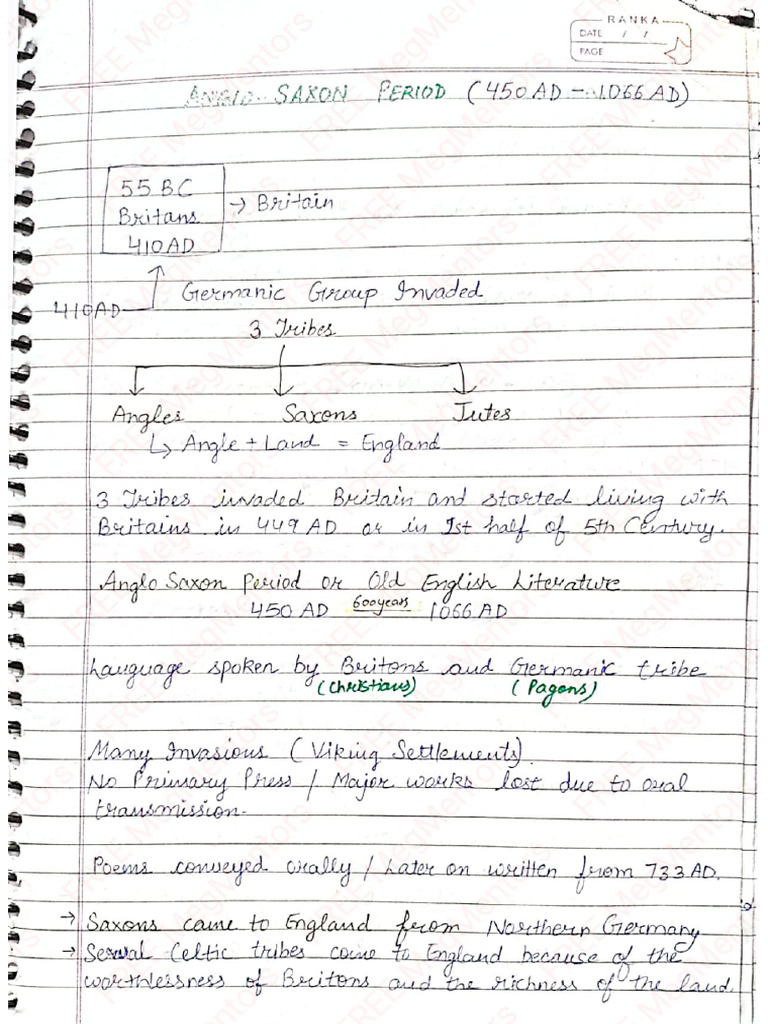 RANKA
DATE / /
PAGE
ANGLO-SAXON PERIOD (450 AD - 1066 AD)
55 BC
Britans → Britain
410 AD
410 AD
Germanic Group Invaded
3 Tribes
Angles Saxons Jutes
↳ Angle + Land = England
3 Tribes invaded Britain and started living with
Britains in 449 AD or in 1st half of 5th Century.
Anglo Saxon Period or Old English Literature
450 AD 600 years 1066 AD
Language spoken by Britons and Germanic tribe
(Christians) (Pagans)
Many Invasions (Viking Settlements).
No Primary Press / Major works lost due to oral
transmission.
Poems conveyed orally / Later on written from 733 AD.
→ Saxons came to England from Northern Germany
→ Several Celtic tribes came to England because of the
worthlessness of Britons and the richness of the land.
FREE MegMentors